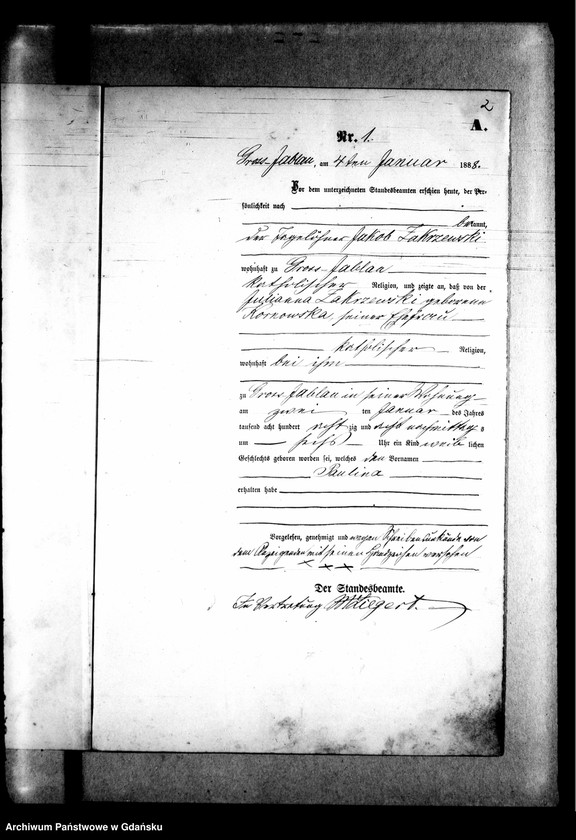 2
A.
Nr. 1.
Gross-Jablau, am 4ten Januar 1888.
Vor dem unterzeichneten Standesbeamten erschien heute, der Per-
sönlichkeit nach
bekannt,
der Tagelöhner Jakob Zakrzewski
wohnhaft zu Gross-Jablau
katholischer Religion, und zeigte an, daß von der
Julianna Zakrzewski geborene
Kornowska, seiner Ehefrau
katholischer Religion,
wohnhaft bei ihm
zu Gross Jablau in seiner Wohnung
am zwei ten Januar des Jahres
tausend acht hundert acht zig und acht nachmittag s
um sechs Uhr ein Kind weib lichen
Geschlechts geboren worden sei, welches den Vornamen
Paulina
erhalten habe
Vorgelesen, genehmigt und wegen Schreibensunkunde von
dem Anzeigenden mit seinen Handzeichen versehen
+ + +
Der Standesbeamte.
In Vertretung
Archiwum Państwowe w Gdańsku